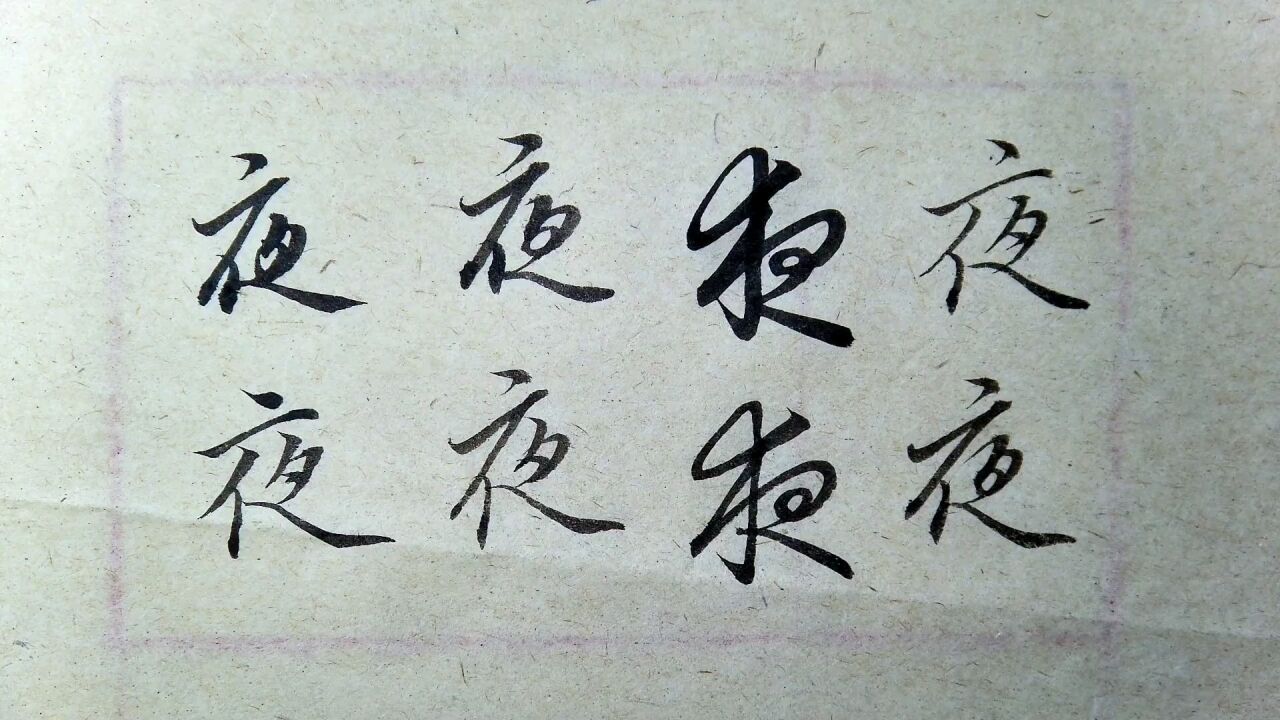 夜夜夜夜
夜夜夜夜